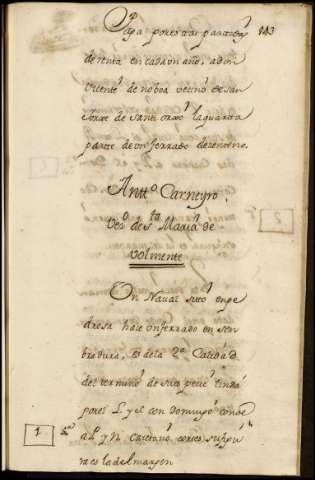 Paga por estas partidas 143
de renta en cada un año, a don
Vicente de noboa vecino de san
de Santi la quarta
parte de un ferrado de zenteno.
Antto. Carneyro
Vo. de Sta. Maria de
volmente
Un Naval sito en pe
dresa haze un ferrado en sen
bradura, es de la 2a. Calidad
del termino de sito linda
por el L. y S. con Domingo conde
1 a P. y N. Caietano cortes su figu
ra es la del margen
2